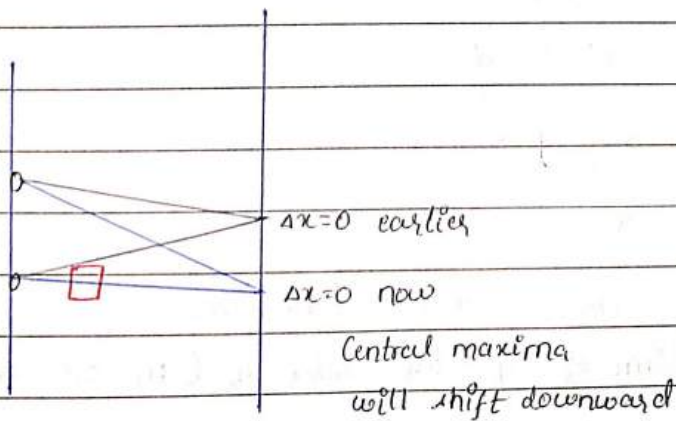 Δx=0 earlier
Δx=0 now
Central maxima
will shift downward